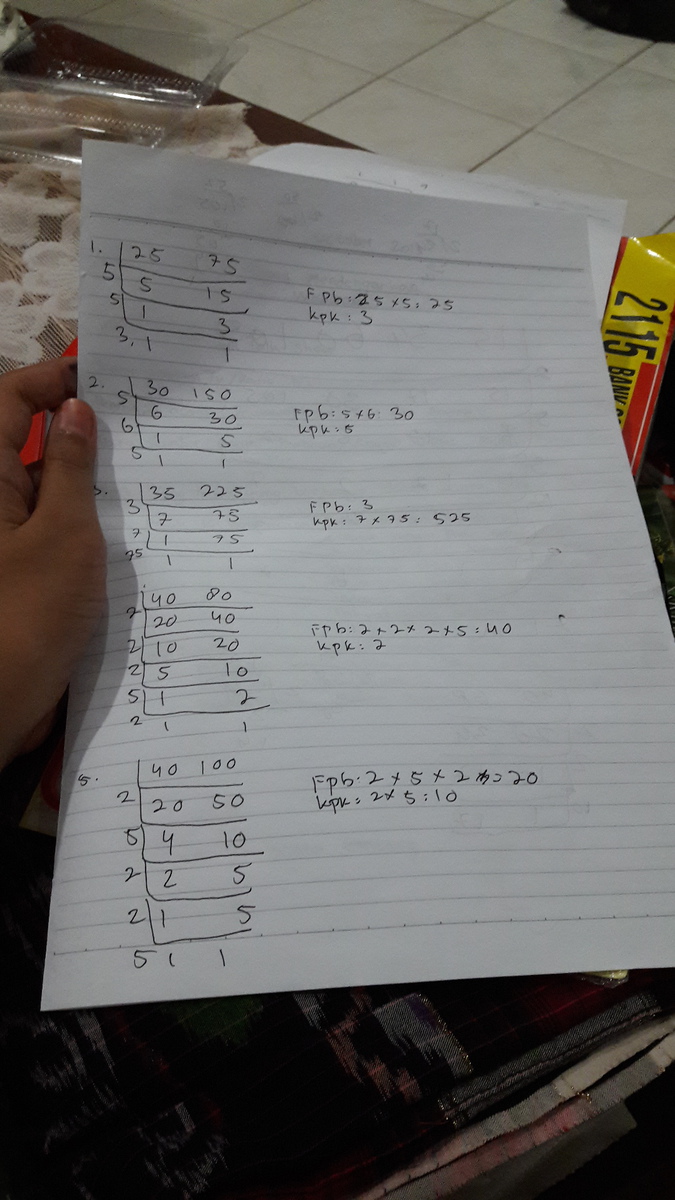 1. 25 75
5 5 15
5 1 3
3, 1 1
Fpb: 25 x 5 : 25
kpk : 3
2. 30 150
5 6 30
6 1 5
5 1 1
Fpb: 5 x 6 : 30
kpk : 5
3. 35 225
3 7 75
7 1 75
75 1 1
Fpb: 3
kpk: 7 x 75 : 525
40 80
2 20 40
2 10 20
2 5 10
5 1 2
2 1 1
Fpb: 2 x 2 x 2 x 5 : 40
kpk : 2
5. 40 100
2 20 50
5 4 10
2 2 5
2 1 5
5 1 1
Fpb: 2 x 5 x 2 = 20
kpk : 2 x 5 : 10
2115